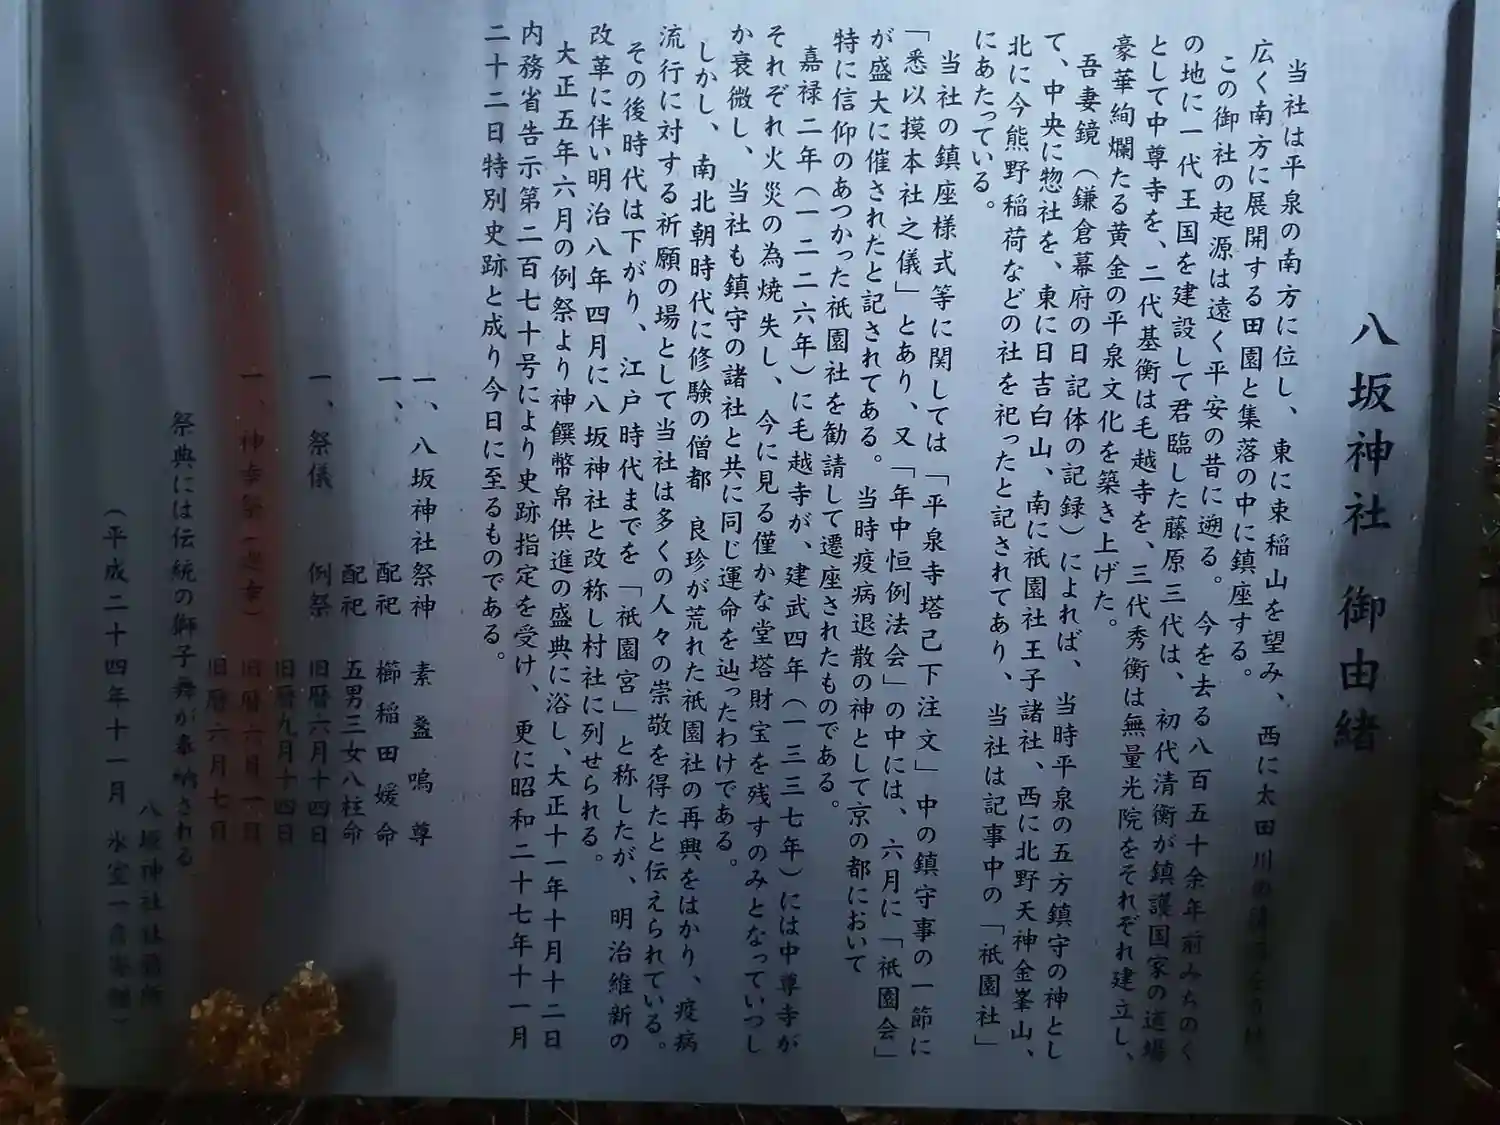 八坂神社 御由緒
当社は平泉の南方に位し、東に束稲山を望み、西に太田川の
広く南方に展開する田園と集落の中に鎮座する。
この御社の起源は遠く平安の昔に遡る。今を去る八百五十余年前みちのく
の地に一代王国を建設して君臨した藤原三代は、初代清衡が鎮護国家の道場
として中尊寺を、二代基衡は毛越寺を、三代秀衡は無量光院をそれぞれ建立し、
豪華絢爛たる黄金の平泉文化を築き上げた。
吾妻鏡(鎌倉幕府の日記体の記録)によれば、当時平泉の五方鎮守の神とし
て、中央に惣社を、東に日吉白山、南に祇園社王子諸社、西に北野天神金峯山、
北に今熊野稲荷などの社を祀ったと記されてあり、当社は記事中の「祇園社」
にあたっている。
当社の鎮座様式等に関しては「平泉寺塔已下注文」中の鎮守事の一節に
「悉以摸本社之儀」とあり、又「年中恒例法会」の中には、六月に「祇園会」
が盛大に催されたと記されてある。当時疫病退散の神として京の都において
特に信仰のあつかった祇園社を勧請して遷座されたものである。
嘉禄二年(一二二六年)に毛越寺が、建武四年(一三三七年)には中尊寺が
それぞれ火災の為焼失し、今に見る僅かな堂塔財宝を残すのみとなっていつし
か衰微し、当社も鎮守の諸社と共に同じ運命を辿ったわけである。
しかし、南北朝時代に修験の僧都 良珍が荒れた祇園社の再興をはかり、疫病
流行に対する祈願の場として当社は多くの人々の崇敬を得たと伝えられている。
その後時代は下がり、江戸時代までを「祇園宮」と称したが、明治維新の
改革に伴い明治八年四月に八坂神社と改称し村社に列せられる。
大正五年六月の例祭より神饌幣帛供進の盛典に浴し、大正十一年十月十二日
内務省告示第二百七十号により史跡指定を受け、更に昭和二十七年十一月
二十二日特別史跡と成り今日に至るものである。
一、八坂神社祭神 素盞嗚尊
一、 配祀 櫛稲田媛命
配祀 五男三女八柱命
一、祭儀 例祭 旧暦六月十四日
旧暦九月十四日
一、神幸祭 旧暦六月一日
旧暦六月七日
祭典には伝統の獅子舞が奉納される
八坂神社社務所
(平成二十四年十一月 氷室